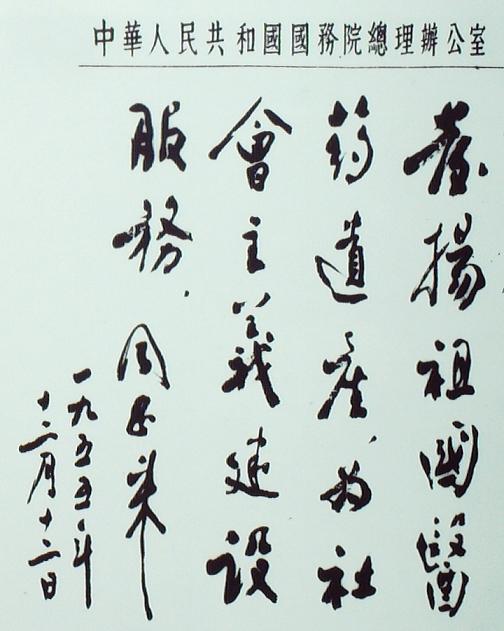 中華人民共和國國務院總理辦公室
發揚祖國醫
药遺產，为社
會主義建設
服務．周恩来
一九五五年
十二月十二日